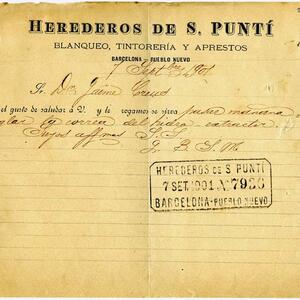 HEREDEROS DE S. PUNTÍ
BLANQUEO, TINTORERÍA Y APRESTOS
BARCELONA - PUEBLO NUEVO
7 Septbre 901
S. Dn Jaime Creus
el gusto de saludar á V. y le rogamos se sirva pasar mañana
la correa del hidro extractor
Suyos affmos S. S.
Q. B. S. M.
HEREDEROS DE S PUNTÍ
7 SET. 1901 Nº 7986
BARCELONA-PUEBLO NUEVO